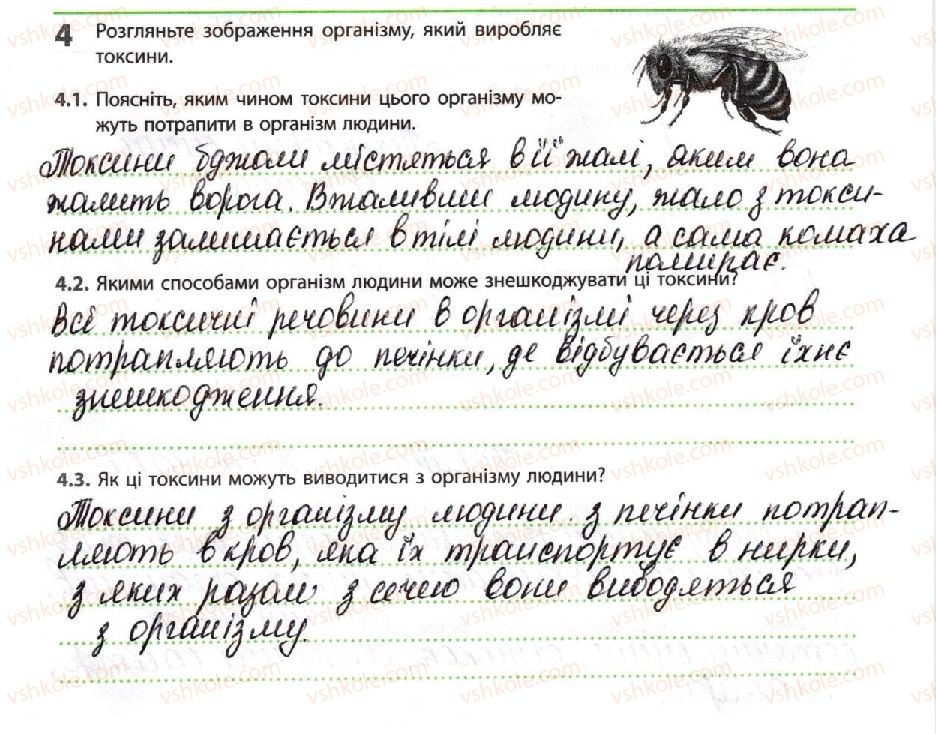 4 Розгляньте зображення організму, який виробляє
токсини.
4.1. Поясніть, яким чином токсини цього організму мо-
жуть потрапити в організм людини.
Токсини бджоли містяться в її жалі, яким вона
жалить ворога. Вжаливши людину, жало з токси-
нами залишається в тілі людини, а сама комаха
помирає.
4.2. Якими способами організм людини може знешкоджувати ці токсини?
Всі токсичні речовини в організмі через кров
потрапляють до печінки, де відбувається їхнє
знешкодження.
4.3. Як ці токсини можуть виводитися з організму людини?
Токсини з організму людини з печінки потрап-
ляють в кров, яка їх транспортує в нирки,
з яких разом з сечею вони виводяться
з організму.
vshkole.com